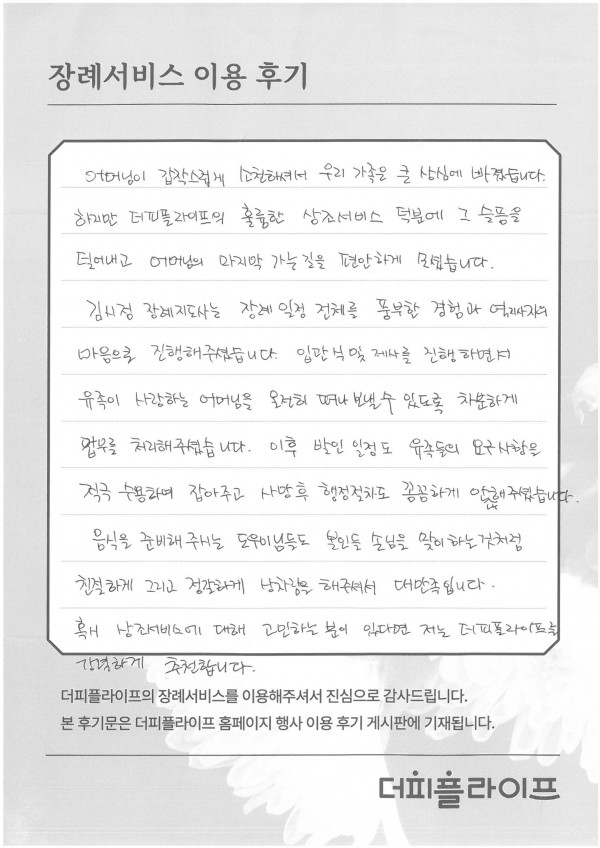 장례서비스 이용 후기
어머님이 갑작스럽게 소천하셔서 우리 가족은 큰 상심에 빠졌습니다.
하지만 더피플라이프의 훌륭한 상조서비스 덕분에 그 슬픔을
덜어내고 어머님의 마지막 가는길을 편안하게 모셨습니다.
김시점 장례지도사는 장례 일정 전체를 풍부한 경험과 역지사지의
마음으로 진행해주셨습니다. 입관식 및 제사를 진행하면서
유족이 사랑하는 어머님을 온전히 떠나 보낼 수 있도록 차분하게
업무를 처리해주셨습니다. 이후 발인 일정도 유족들의 요구사항을
적극 수용하며 잡아주고 사망후 행정절차도 꼼꼼하게 안내해주셨습니다.
음식을 준비해 주시는 도우미님들도 본인들 손님을 맞이하는것처럼
친절하게 그리고 정갈하게 상차림을 해주셔서 대만족입니다.
혹시 상조서비스에 대해 고민하는 분이 있다면 저는 더피플라이프를
강력하게 추천합니다.
더피플라이프의 장례서비스를 이용해주셔서 진심으로 감사드립니다.
본 후기문은 더피플라이프 홈페이지 행사 이용 후기 게시판에 기재됩니다.
더피플라이프